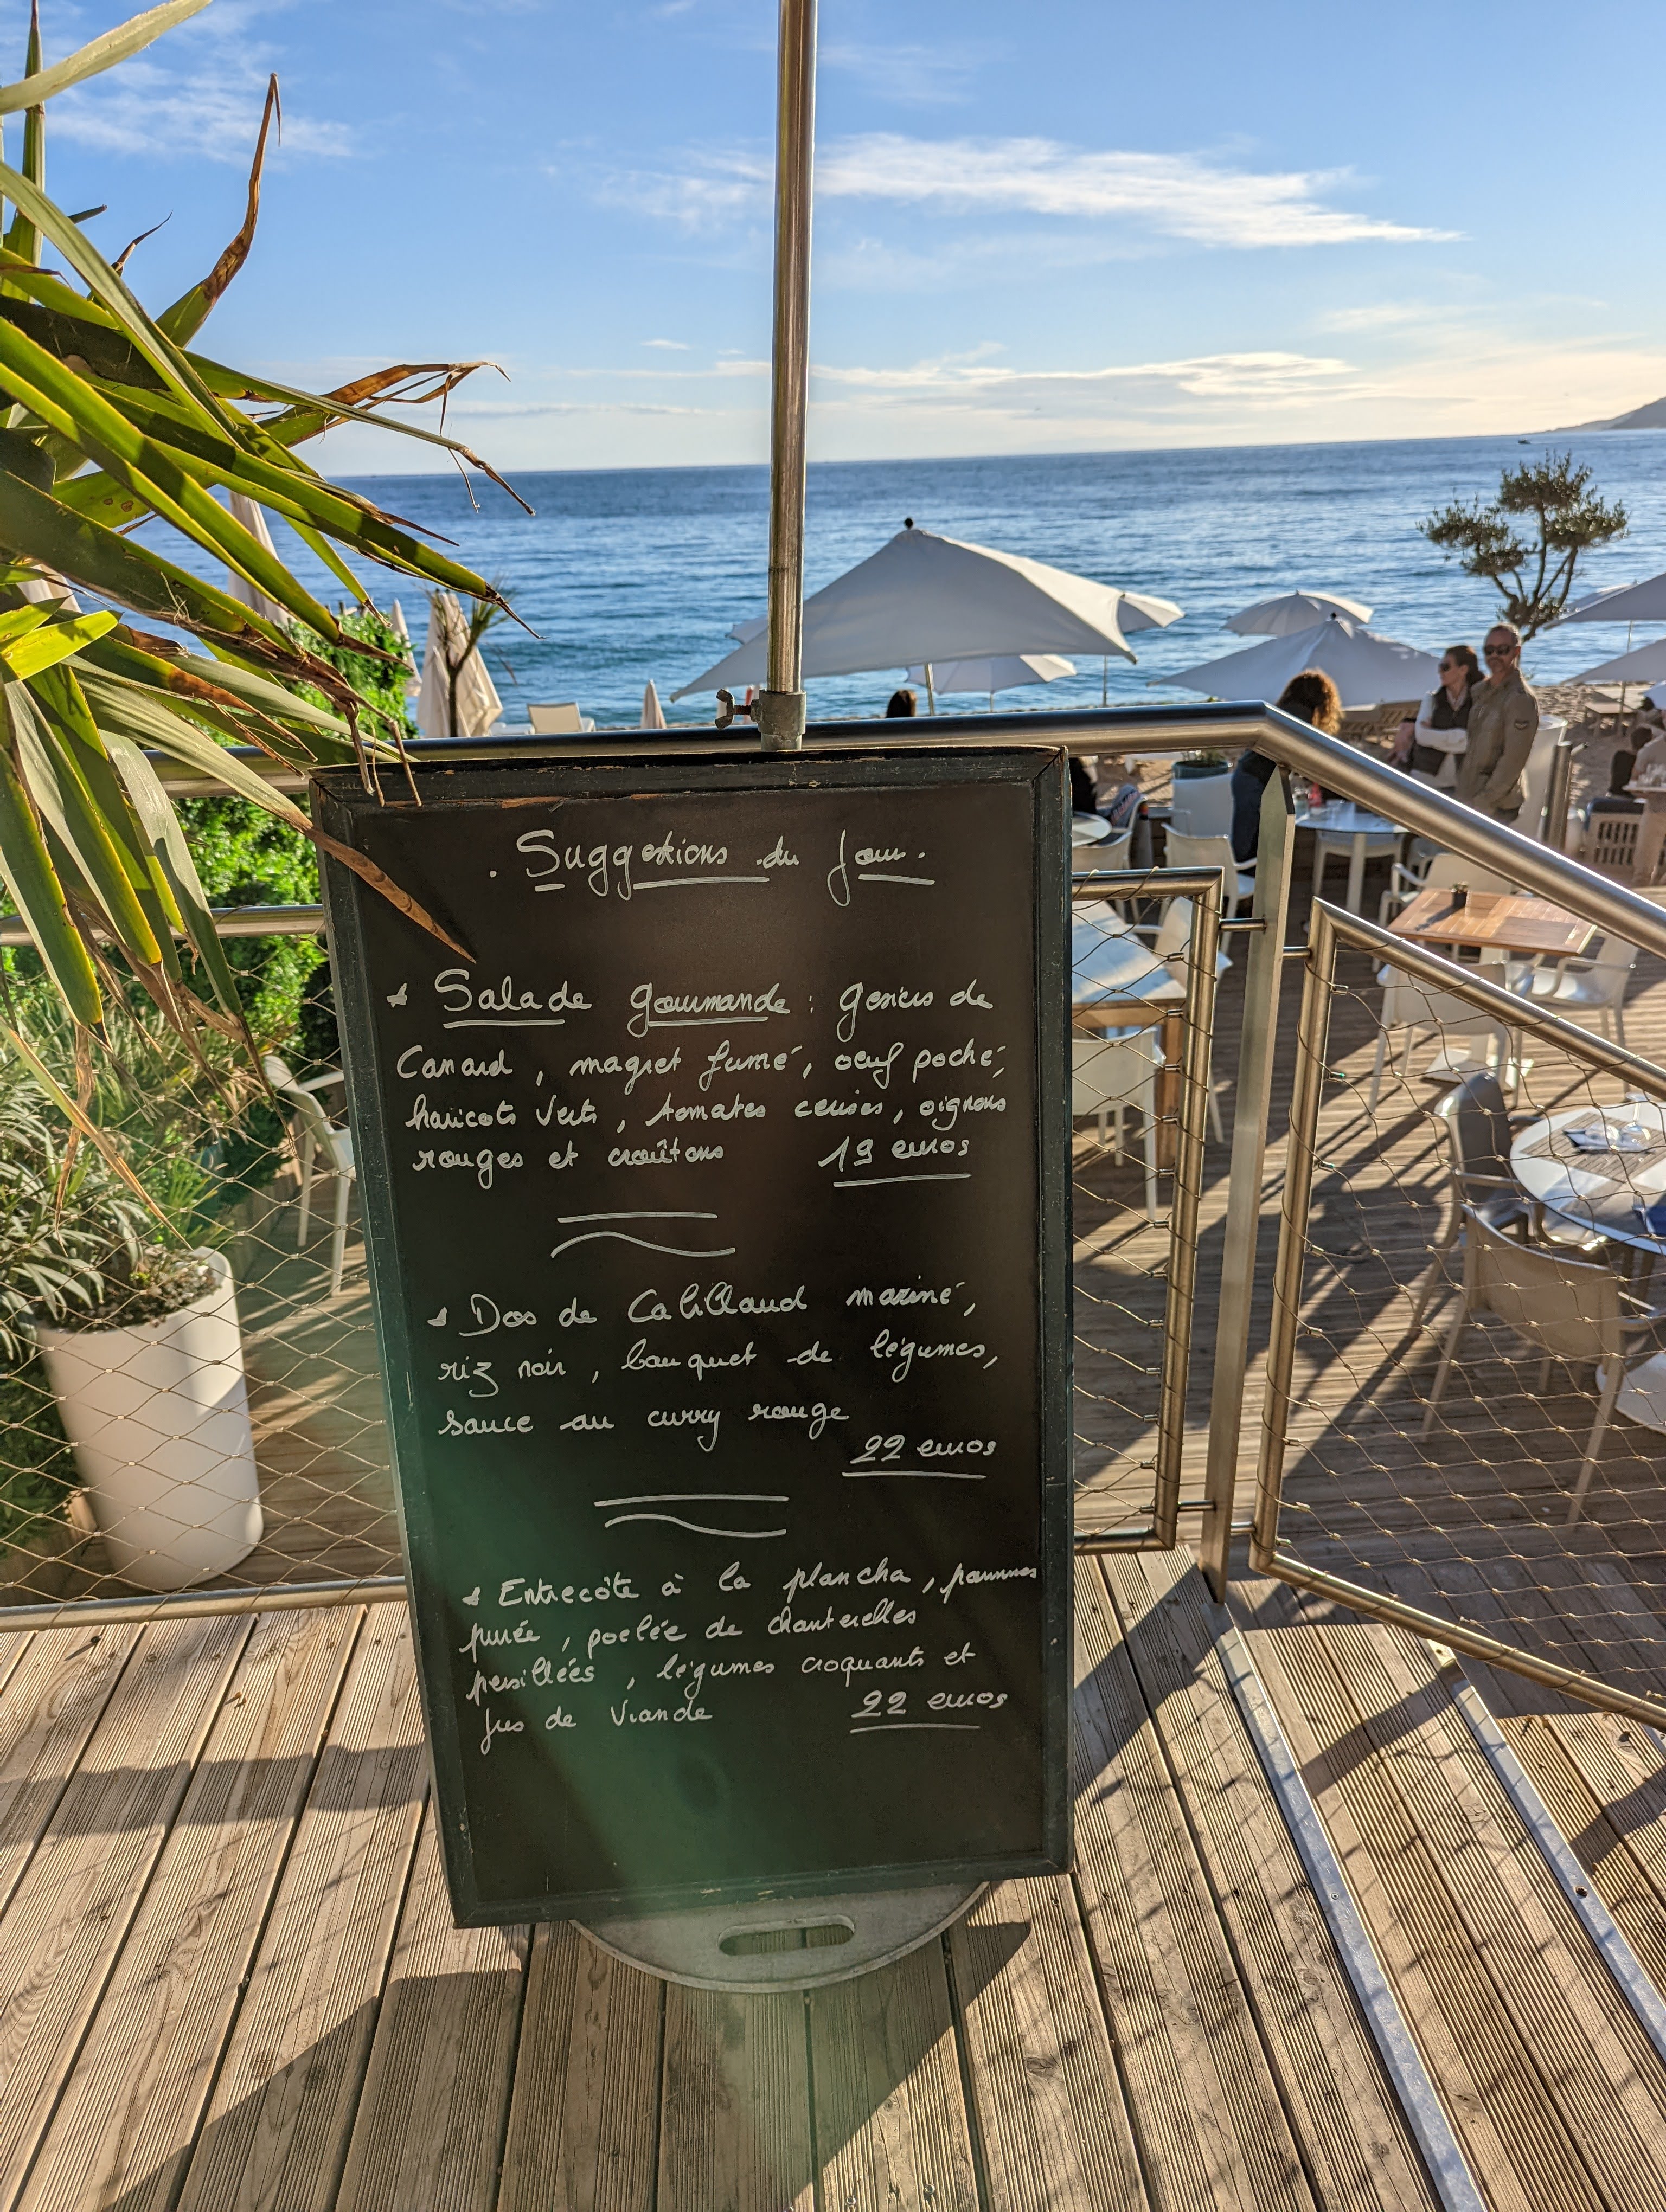 . Suggestions du jour .
* Salade gourmande : gesiers de
Canard , magret fumé , oeuf poché,
haricots verts , tomates cerises , oignons
rouges et croûtons 19 euros
* Dos de Cabillaud mariné,
riz noir , bouquet de légumes,
sauce au curry rouge
22 euros
* Entrecôte à la plancha , pommes
purée , poelée de chanterelles
persillées , légumes croquants et
jus de Viande 22 euros